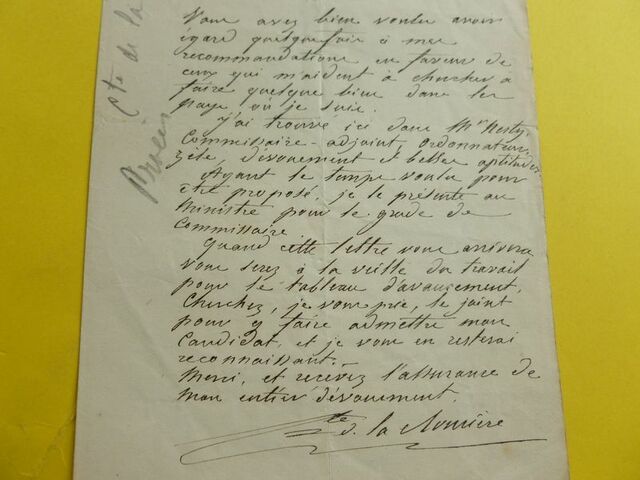 Vous avez bien voulu avoir
égard quelquefois à mes
recommandations en faveur de
ceux qui m'aident à chercher à
faire quelque bien dans les
pays où je suis.
J'ai trouvé ici dans Mr
Commissaire-adjoint, ordonnateur,
zèle, dévouement et belles aptitudes.
Ayant le temps voulu pour
être proposé, je le présente au
Ministre pour le grade de
Commissaire.
Quand cette lettre vous arrivera
vous serez à la veille du travail
pour le tableau d'avancement.
Cherchez, je vous prie, le joint
pour y faire admettre mon
Candidat, et je vous en resterai
reconnaissant.
Merci, et recevez l'assurance de
mon entier dévouement.
Cte de la
Cte de la